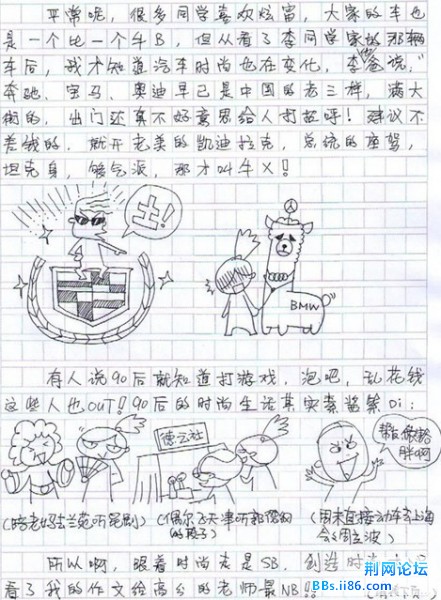 平常呢,很多同学喜欢炫富,大家的车也
是一个比一个牛B,但从看了李同学家的那辆
车后,我才知道汽车时尚也在变化,李爸说,"
奔驰、宝马、奥迪早已是中国的老三样,满大
街的,出门还真不好意思给人打招呼!建议不
差钱的,就开老美的凯迪拉克,总统的座驾,
坦克身,够气派,那才叫牛X!
土!
BMW
有人说90后就知道打游戏,泡吧,乱花钱
这些人也OUT!90后的时尚生活其实素酱紫Di:
德云社
帮你做哈
胖啊
(陪老妈去兰苑听昆剧)
(偶尔飞天津听郭德纲
的段子)
(周末直接动车去上海
会会周立波)
所以啊,跟着时尚走是SB,创造时
看了我的作文给高分的老师最NB!!
荆网论坛
BBs.ii86.com